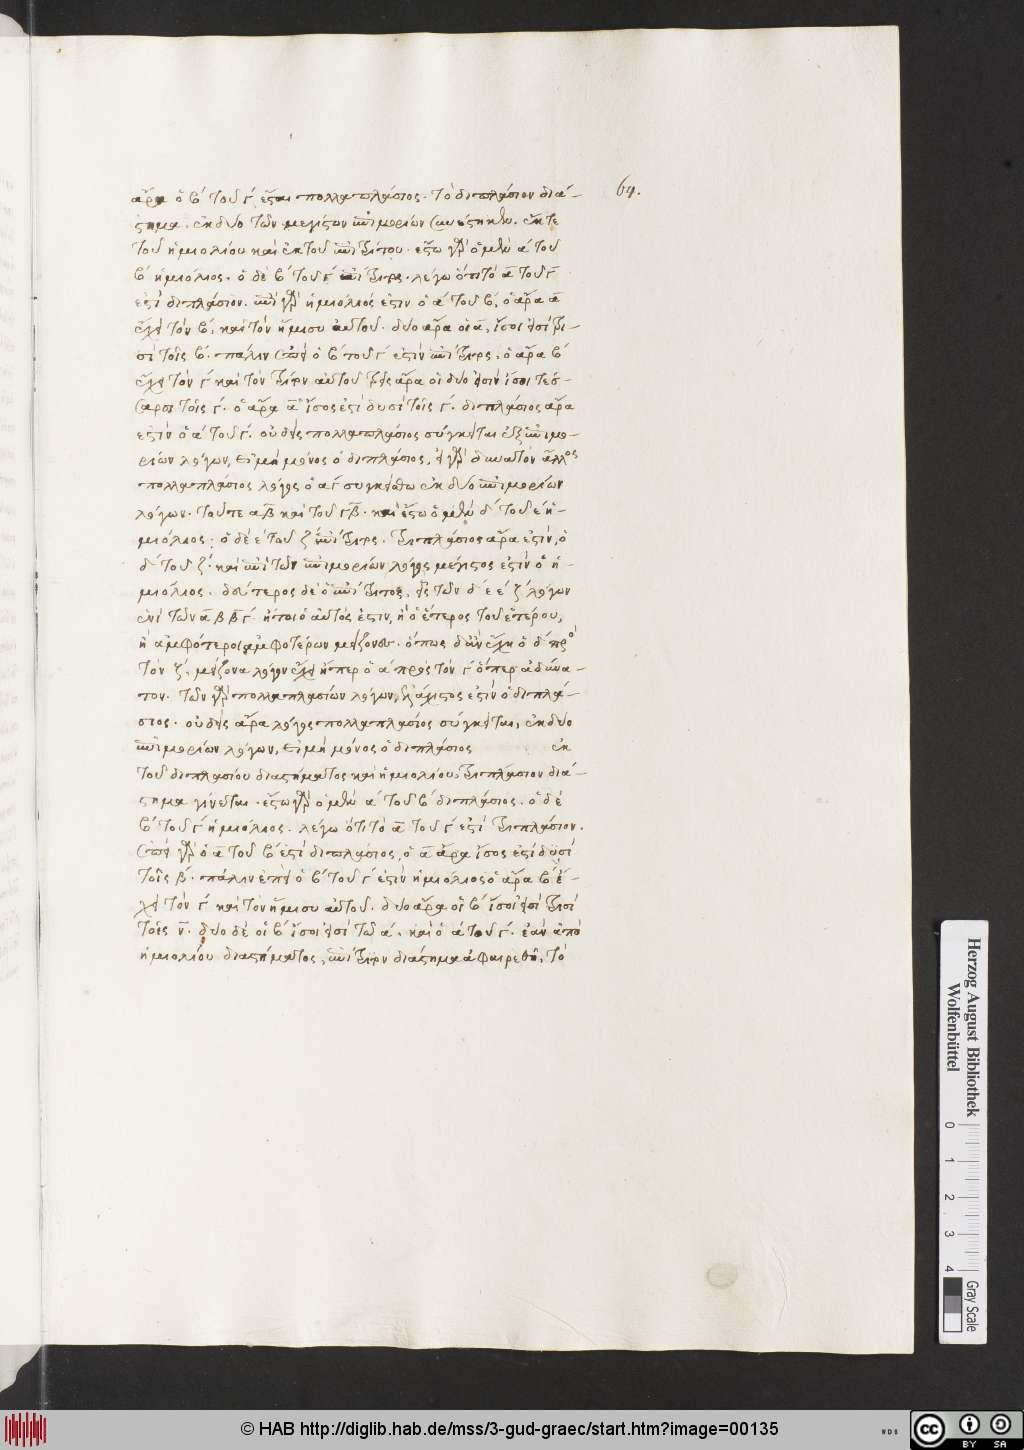 ἄρα ὁ β΄ τοῦ γ΄ ἔσται πολλαπλάσιος. τὸ διπλάσιον διά-
στημα. ἐκ δύο τῶν μεγίστων ἐπιμορίων συνέστηκεν. ἔκ τε
τοῦ ἡμιολίου καὶ ἐκ τοῦ ἐπιτρίτου. ἔστω γὰρ ὁ μὲν α΄ τοῦ
β΄ ἡμιόλιος. ὁ δὲ β΄ τοῦ γ΄ ἐπίτριτος. λέγω ὅτι τὸ α τοῦ γ
ἐστὶ διπλάσιον. ἐπεὶ γὰρ ἡμιόλιός ἐστιν ὁ α΄ τοῦ β΄, ὁ ἄρα α
ἔχει τὸν β΄, καὶ τὸν ἥμισυ αὐτοῦ. δύο ἄρα οἱ α, ἴσοι εἰσὶ τρι-
σὶ τοῖς β΄. πάλιν ἐπεὶ ὁ β΄ τοῦ γ΄ ἐστὶν ἐπίτριτος, ὁ ἄρα β΄
ἔχει τὸν γ΄ καὶ τὸν τρίτον αὐτοῦ τρεῖς ἄρα οἱ δύο εἰσὶν ἴσοι τέσ-
σαρσι τοῖς γ΄. ὁ ἄρα α ἴσος ἐστὶ δυσὶ τοῖς γ΄. διπλάσιος ἄρα
ἐστὶν ὁ α΄ τοῦ γ΄. οὐδεὶς πολλαπλάσιος σύγκειται ἐξ ἐπιμο-
ρίων λόγων, εἰ μὴ μόνος ὁ διπλάσιος. εἰ γὰρ δυνατὸν ἄλλος
πολλαπλάσιος λόγος ὁ αγ συγκείσθω ἐκ δύο ἐπιμορίων
λόγων. τοῦ τε αβ καὶ τοῦ γβ. καὶ ἔστω ὁ μὲν δ΄ τοῦ ε΄ ἡ-
μιόλιος: ὁ δὲ ε΄ τοῦ ζ΄ ἐπίτριτος. τριπλάσιος ἄρα ἐστὶν, ὁ
δ΄ τοῦ ζ΄. καὶ ἐπεὶ τῶν ἐπιμορίων λόγος μέγιστος ἐστὶν ὁ ἡ-
μιόλιος. δεύτερος δὲ ὁ ἐπίτριτος, εἷς τῶν δ΄ ε ε΄ ζ΄ λόγων
ἑνὶ τῶν α β β γ΄. ἤτοι ὁ αὐτός ἐστιν, ἢ ὁ ἕτερος τοῦ ἑτέρου,
ἢ ἀμφότεροι ἀμφοτέρων μείζονες. ὅπως δ' ἂν ἔχῃ ὁ δ΄ πρὸς
τὸν ζ΄. μείζονα λόγον ἔχει ἤπερ ὁ α΄ πρὸς τὸν γ΄ ὅπερ ἀδύνα-
τον. τῶν γὰρ πολλαπλασίων λόγων ἐλάχιστος ἐστὶν ὁ διπλά-
σιος. οὐδεὶς ἄρα λόγος πολλαπλάσιος σύγκειται, ἐκ δύο
ἐπιμορίων λόγων, εἰ μὴ μόνος ὁ διπλάσιος ἐκ
τοῦ διπλασίου διαστήματος καὶ ἡμιολίου, τριπλάσιον διά-
στημα γίνεται. ἔστω γὰρ ὁ μὲν α΄ τοῦ β΄ διπλάσιος. ὁ δὲ
β΄ τοῦ γ΄ ἡμιόλιος. λέγω ὅτι τὸ α τοῦ γ΄ ἐστὶ τριπλάσιον.
ἐπεὶ γὰρ ὁ α τοῦ β΄ ἐστὶ διπλάσιος, ὁ α ἄρα ἴσος ἐστὶ δυσὶ
τοῖς β΄. πάλιν ἐπεὶ ὁ β΄ τοῦ γ΄ ἐστὶν ἡμιόλιος ὁ ἄρα β΄ ἔ-
χει τὸν γ΄ καὶ τὸν ἥμισυ αὐτοῦ. δύο ἄρα οἱ β΄ ἴσοι εἰσὶ τρισὶ
τοῖς γ. δύο δὲ οἱ β΄ ἴσοι εἰσὶ τῷ α΄. καὶ ὁ α΄ τοῦ γ΄. ἐὰν ἀπὸ
ἡμιολίου διαστήματος, ἐπίτριτον διάστημα ἀφαιρεθῇ, τὸ
64.
Herzog August Bibliothek
Wolfenbüttel
0 1 2 3 4
Gray Scale
© HAB http://diglib.hab.de/mss/3-gud-graec/start.htm?image=00135
WDB
cc BY SA